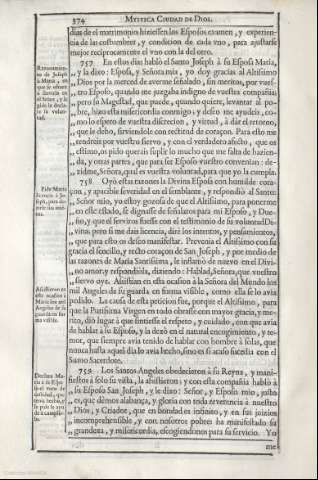 374 MYSTICA CIUDAD DE DIOS,
dias de el matrimonio hiziessen los Esposos examen, y experien-
cia de las costumbres, y condicion de cada vno, para ajustarse
mejor reciprocamente el vno con la del otro.
757 En estos dias habló el Santo Joseph à su Esposa Maria,
,, y la dixo: Esposa, y Señora mia, yo doy gracias al Altissimo
,, Dios por la merced de averme señalado, sin meritos, por vues-
,, tro Esposo, quando me juzgaba indigno de vuestra compañia;
,, pero su Magestad, que puede, quando quiere, levantar al po-
,, bre, hizo esta misericordia conmigo; y deseo me ayudeis, co-
,, mo lo espero de vuestra discrecion, y virtud, à dàr el retorno,
,, que le debo, sirviendole con rectitud de coraçon. Para esto me
,, tendreis por vuestro siervo, y con el verdadero afecto, que os
,, estimo, os pido querais suplir lo mucho que me falta de hazien-
,, da, y otras partes, que para ser Esposo vuestro convenian: de-
,, zidme, Señora, qual es vuestra voluntad, para que yo la cumpla.
758 Oyò estas razones la Divina Esposa con humilde cora-
çon, y apacible severidad en el semblante, y respondiò al Santo:
,, Señor mio, yo estoy gozosa de que el Altissimo, para ponerme
,, en este estado, se dignasse de señalaros para mi Esposo, y Due-
,, ño, y que el serviros fuesse con el testimonio de su voluntad Di-
,, vina: pero si me dais licencia, dirè los intentos, y pensamientos,
,, que para esto os deseo manifestar. Prevenia el Altissimo con su
gracia el sencillo, y recto coraçon de San Joseph, y por medio de
las razones de Maria Santissima, le inflamò de nuevo en el Divi-
no amor, y respondiòla, diziendo: Hablad, Señora, que vuestro
,, siervo oye. Assistian en esta ocasion à la Señora del Mundo los
mil Angeles de su guarda en forma visible, como ella se lo avia
pedido. La causa de esta peticion fue, porque el Altissimo, para
que la Purissima Virgen en todo obrasse con mayor gracia, y me-
rito, diò lugar à que sintiesse el respeto, y cuidado, con que avia
de hablar à su Esposo, y la dexò en el natural encogimiento, y te-
mor, que siempre avia tenido de hablar con hombre à solas, que
nunca hasta aquel dia lo avia hecho, sino es si acaso sucedia con el
Sumo Sacerdote.
759 Los Santos Angeles obedecieron à su Reyna, y mani-
fiestos à solo su vista, la assistieron: y con esta compañia hablò à
,, su Esposo San Joseph, y le dixo: Señor, y Esposo mio, justo
,, es, que dèmos alabança, y gloria con toda reverencia à nuestro
,, Dios, y Criador, que en bondad es infinito, y en sus juizios
,, incomprehensible, y con nosotros pobres ha manifestado su
,, grandeza, y misericordia, escogiendonos para su servicio. Yo
me